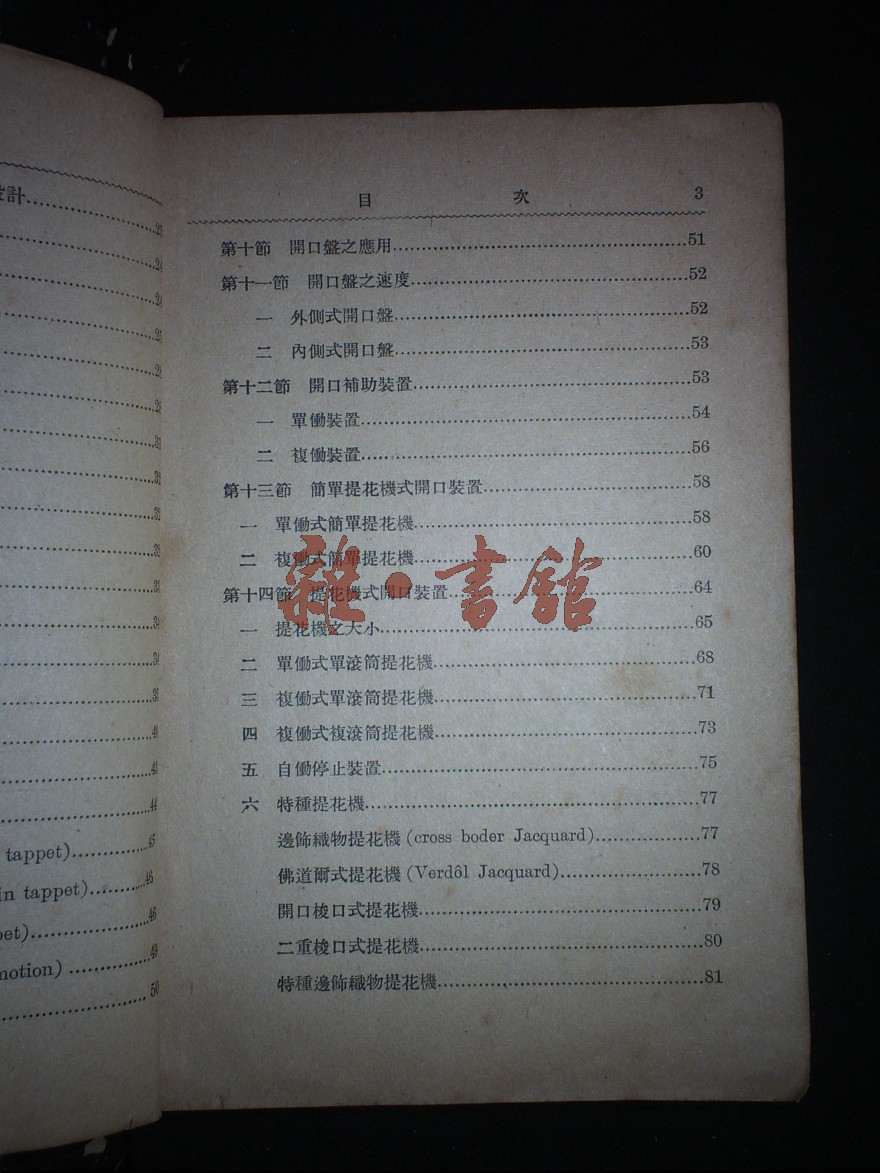 計
23
24
24
25
28
29
31
32
33
33
33
34
34
39
40
43
44
tappet) 45
in tappet) 46
pet) 46
motion) 49
50
目 次 3
第十節 開口盤之應用 51
第十一節 開口盤之速度 52
一 外側式開口盤 52
二 內側式開口盤 53
第十二節 開口補助裝置 53
一 單働裝置 54
二 複働裝置 56
第十三節 簡單提花機式開口裝置 58
一 單働式簡單提花機 58
二 複働式簡單提花機 60
第十四節 提花機式開口裝置 64
一 提花機之大小 65
二 單働式單滾筒提花機 68
三 複働式單滾筒提花機 71
四 複働式複滾筒提花機 73
五 自働停止裝置 75
六 特種提花機 77
邊飾織物提花機 (cross boder Jacquard) 77
佛道爾式提花機 (Verdôl Jacquard) 78
開口梭口式提花機 79
二重梭口式提花機 80
特種邊飾織物提花機 81
雜·書館